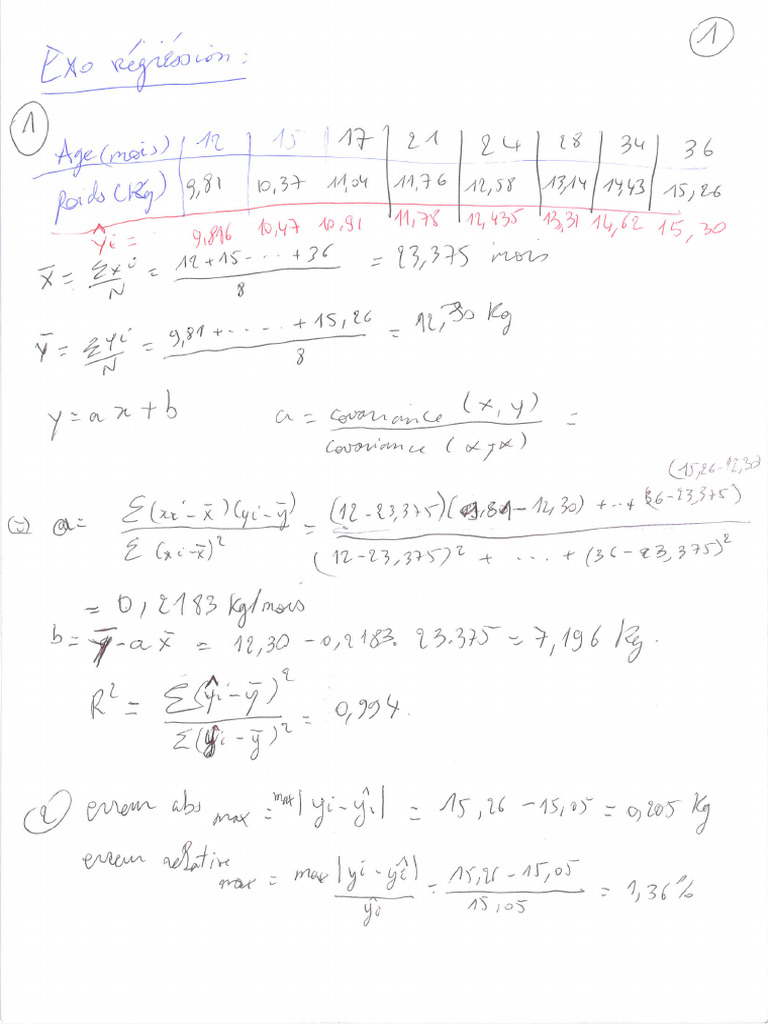 1
Exo régréssion :
1
Age (mois) 12 15 17 21 24 28 34 36
Poids (Kg) 9,81 10,37 11,04 11,76 12,58 13,14 14,43 15,26
ŷi = 9,816 10,47 10,91 11,78 12,435 13,31 14,62 15,30
x̄ = Σxi/N = (12+15-...+36)/8 = 23,375 mois
ȳ = Σyi/N = (9,81+-...+15,26)/8 = 12,30 Kg
y = ax+b a = covariance (x,y)/covariance (x,x) =
(=) a = Σ(xi-x̄)(yi-ȳ)/Σ(xi-x̄)² = ((12-23,375)(9,81-12,30)+...+(36-23,375)(15,26-12,30))/((12-23,375)²+...+(36-23,375)²)
= 0,2183 Kg/mois
b = ȳ-a x̄ = 12,30-0,2183. 23.375 = 7,196 Kg.
R² = Σ(ŷi-ȳ)²/Σ(yi-ȳ)² = 0,994.
2 erreur abs max = max|yi-ŷi| = 15,26-15,05 = 0,205 Kg
erreur relative max = max|yi-ŷi|/ŷi = (15,26-15,05)/15,05 = 1,36%